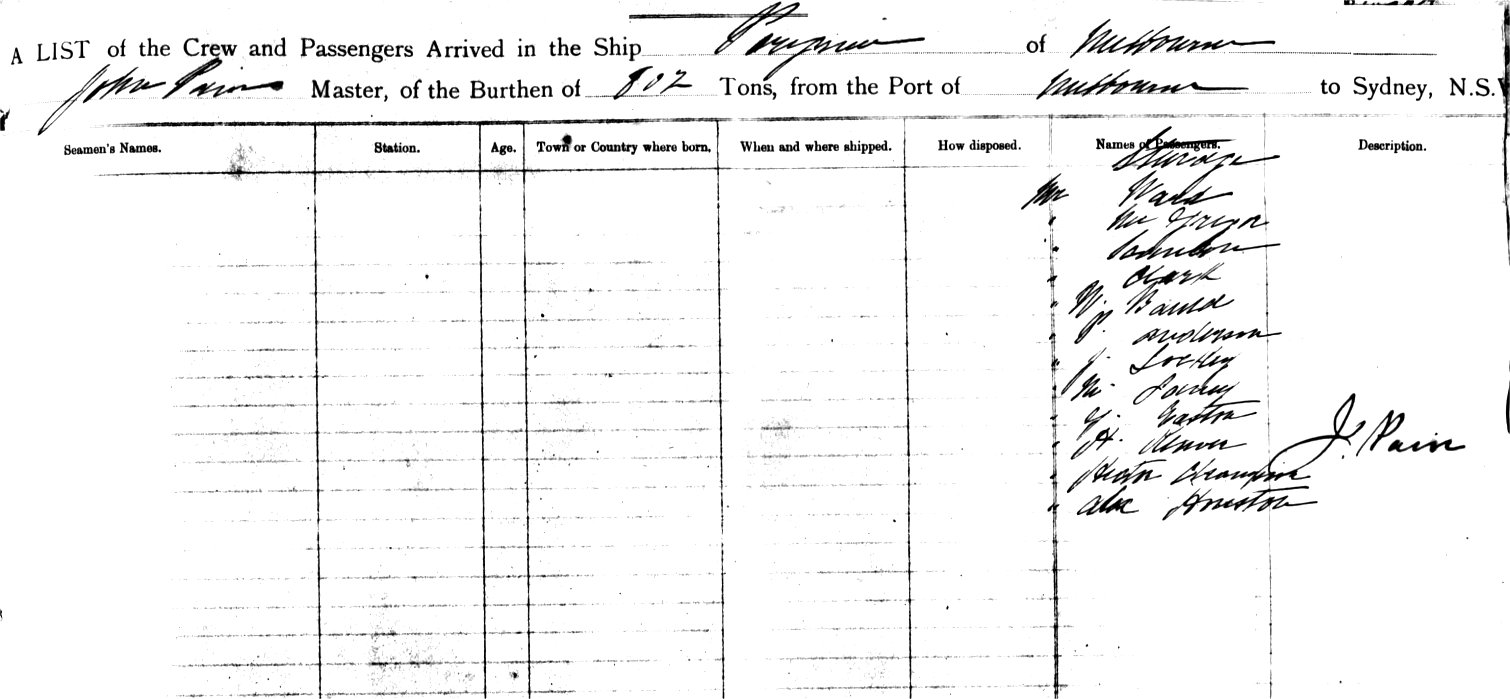 A LIST of the Crew and Passengers Arrived in the Ship of Melbourne
John Pain Master, of the Burthen of 802 Tons, from the Port of Melbourne to Sydney, N.S.W
Seamen's Names. Station. Age. Town or Country where born. When and where shipped. How disposed. Names of Passengers. Description.
Steerage
Mr Ward
" McGregor
"
" Clark
" W. Bauld
" J. Anderson
" J. Lockley
" M.
" G. Easton
" H.
" Hector Champion
" Alex Houston
J. Pain